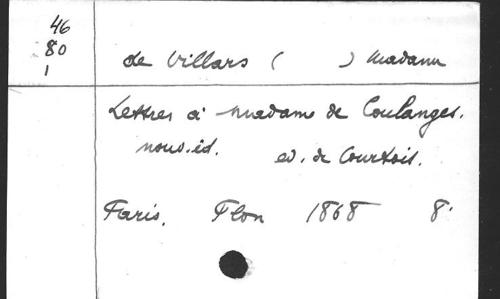 46
80
1
de Villars ( ) Madame
Lettres à madame de Coulanges.
nouv. éd. ed. de Courtois.
Paris. Plon 1868 8°